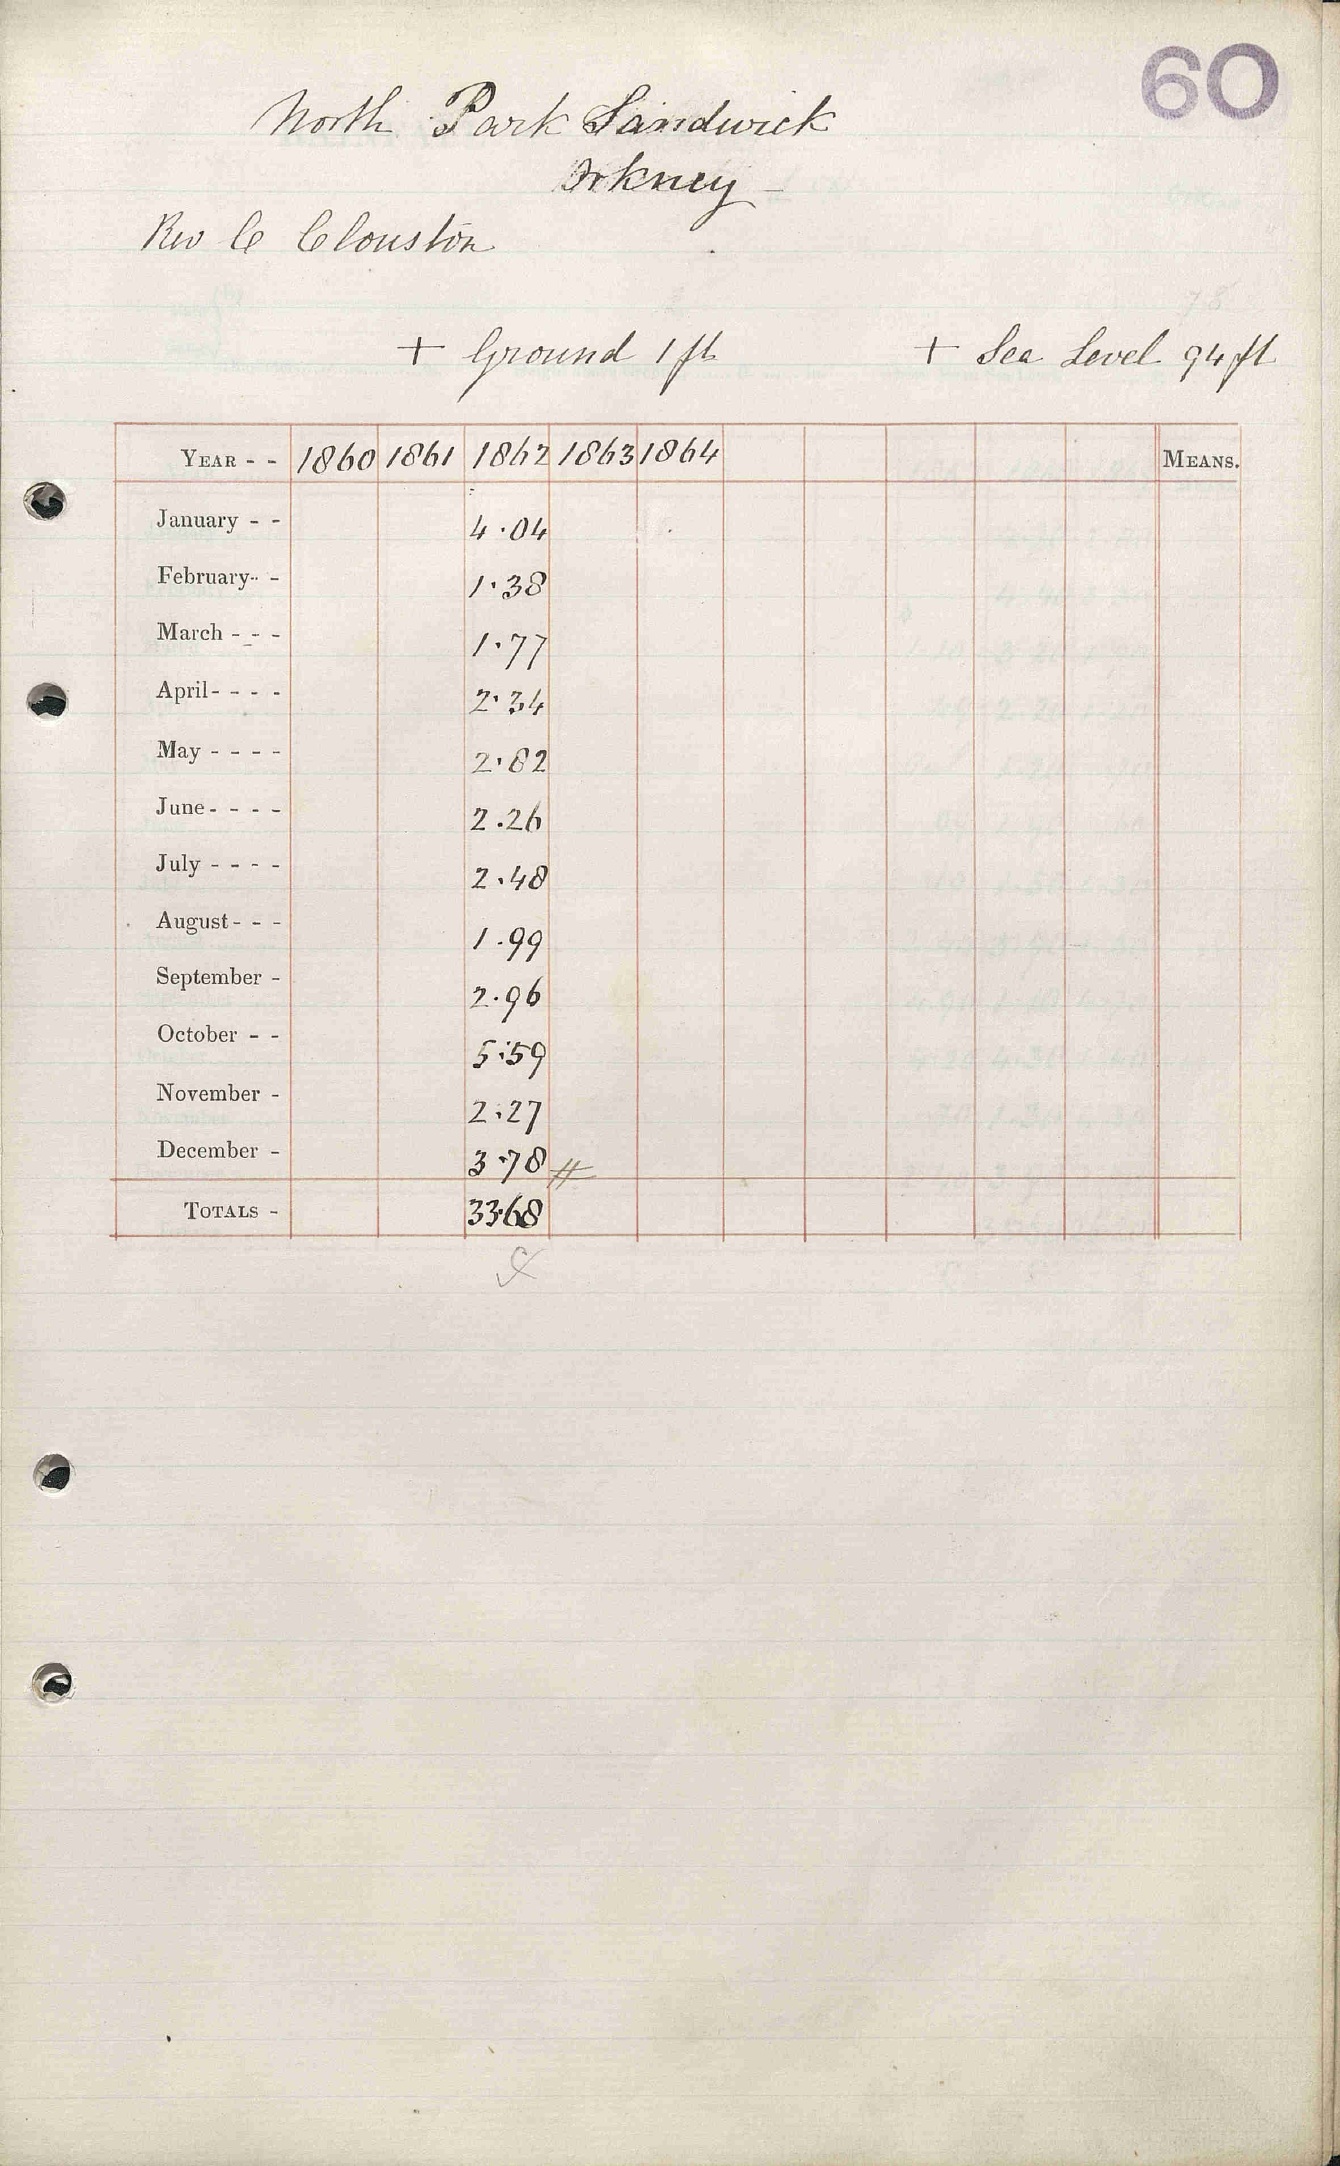 60
North Park Sandwick
Orkney -
Rev C Clouston
+ Ground 1 ft + Sea Level 94 ft
YEAR - - 1860 1861 1862 1863 1864 MEANS.
January - - 4.04
February - - 1.38
March - - - 1.77
April - - - - 2.34
May - - - - 2.82
June - - - - 2.26
July - - - - 2.48
August - - - 1.99
September - 2.96
October - - 5.59
November - 2.27
December - 3.78 #
TOTALS - 33.68